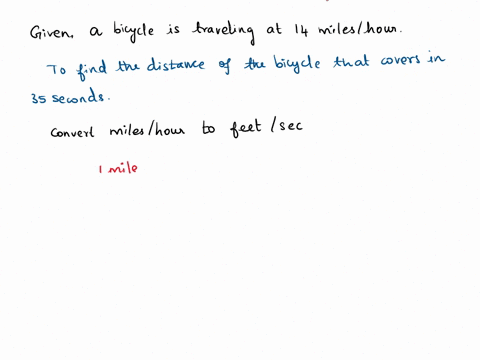 Given, a bicycle is traveling at 14 miles/hour.
To find the distance of the bicycle that covers in
35 seconds.
Convert miles/hour to feet/sec
1 mile